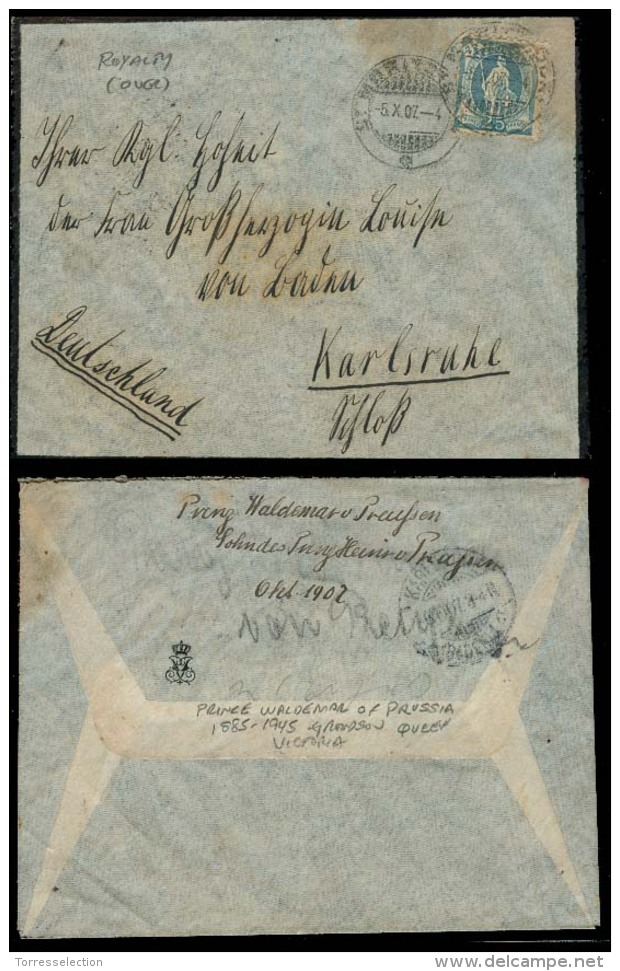 ROYALTY
(OVER)
ST. MORITZ
-5.X.07.-4
25
Ihrer Kgl. Hoheit
der Frau Großherzogin Louise
von Baden
Karlsruhe
Schloß
Deutschland
Prinz Waldemar v Preußen
Sohn des Prinz Heinr v Preußen
Okt. 1907
von
PRINCE WALDEMAR OF PRUSSIA
1885-1945 GRANDSON QUEEN
VICTORIA
Torresselection
delcampe.net